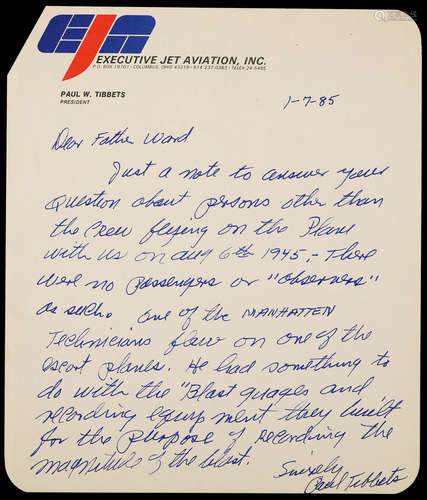 EJA
EXECUTIVE JET AVIATION, INC.
P.O. BOX 19707 • COLUMBUS, OHIO 43219 • 614-237-0363 • TELEX 24-5495
PAUL W. TIBBETS
PRESIDENT
1-7-85
Dear Father Ward
Just a note to answer your
question about persons other than
the crew flying on the Plane
with us on Aug 6th 1945,- There
were no passengers or "observers"
as such. One of the MANHATTEN
Technicians flew on one of the
escort planes. He had something to
do with the "Blast guages and
recording equipment they built
for the purpose of recording the
magnitude of the blast.
Sincerely
Paul Tibbets